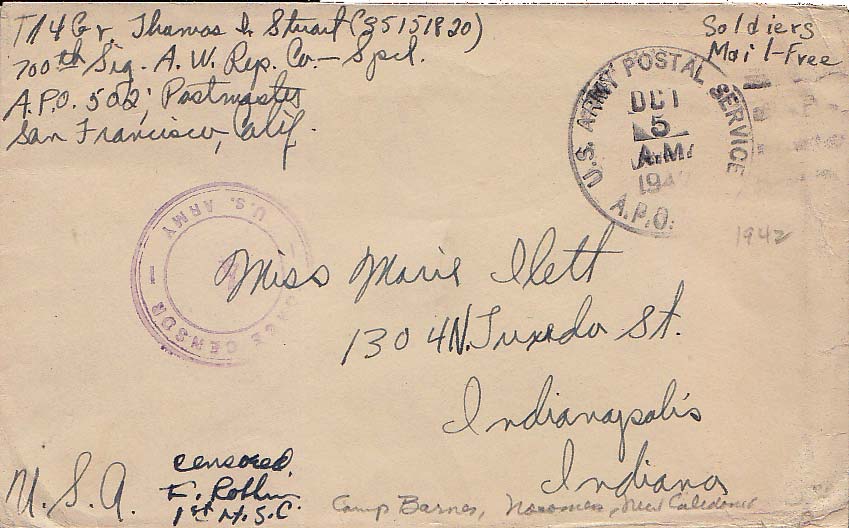 T/4 Gr. Thomas I. Stuart (35151820)
700th Sig. A. W. Rep. Co. - Spcl.
A.P.O. 502, Postmaster
San Francisco, Calif.
Soldiers
Mail-Free
U.S. ARMY POSTAL SERVICE
OCT
5
A.M.
194
A.P.O.
1942
U.S. ARMY
CENSOR
Miss Marie Ilett
1304 N. Tuxedo St.
Indianapolis
Indiana
U.S.A.
censored
F.
1st
Camp Barnes, New Caledonia